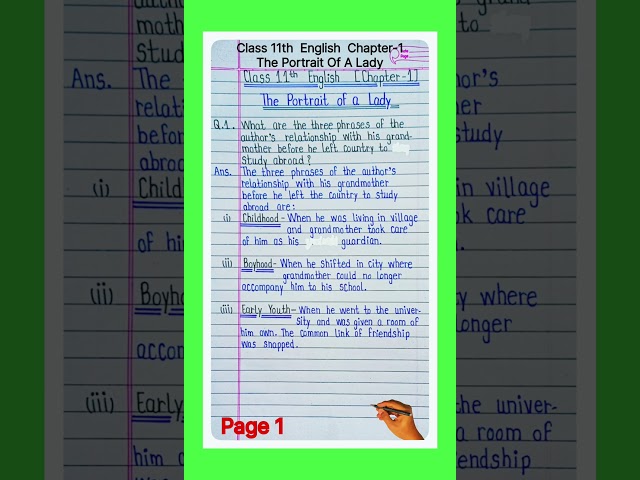 Class 11th English Chapter-1
The Portrait Of A Lady
Class 11th English [Chapter-1]
The Portrait of a Lady
Q.1. What are the three phrases of the
author's relationship with his grand-
mother before he left country to
study abroad?
Ans. The three phrases of the author's
relationship with his grandmother
before he left the country to study
abroad are:
(i) Childhood - When he was living in village
and grandmother took care
of him as his guardian.
(ii) Boyhood - When he shifted in city where
grandmother could no longer
accompany him to his school.
(iii) Early Youth - When he went to the univer-
sity and was given a room of
him own. The common link of friendship
was snapped.
Page 1
moth
stud
Ans. The
relat
befor
abroa
(i) Child
of hi
(ii) Boyh
accom
(iii) Early
him
was
to
or's
study
in village
care
n.
y where
onger
the univer-
a room of
endship